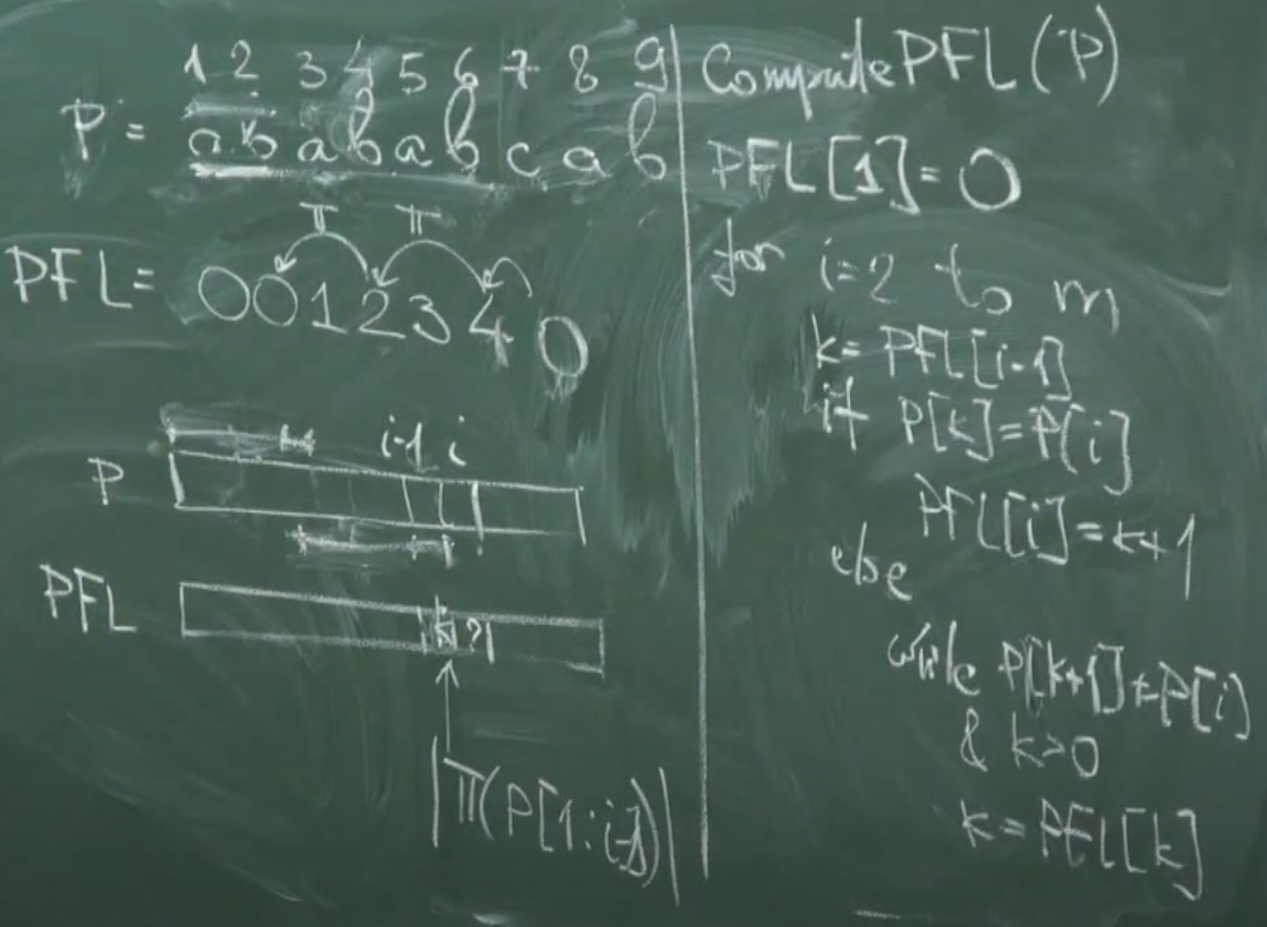 1 2 3 4 5 6 7 8 9
P = a b a b a b c a b
π π
PFL= 0 0 1 2 3 4 0
i-1 i
P
PFL k ?
|π(P[1:i-1])|
Compute PFL(P)
PFL[1]=0
for i=2 to m
k= PFL[i-1]
if P[k]=P[i]
PFL[i]=k+1
else
while P[k+1]≠P[i]
& k>0
k=PFL[k]